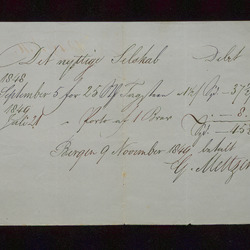 Det nyttige Selskab Debet
1848
September 5 for 25 Tugsteen 37
1849
Juli 21 " Porto af 1 Brev " 8
45
Bergen 9 November 1849 betalt
G. Meltzer